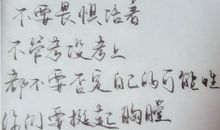 不要畏惧陪着
不管考没考上
都不要否定自己的可能性
你们要挺起胸膛